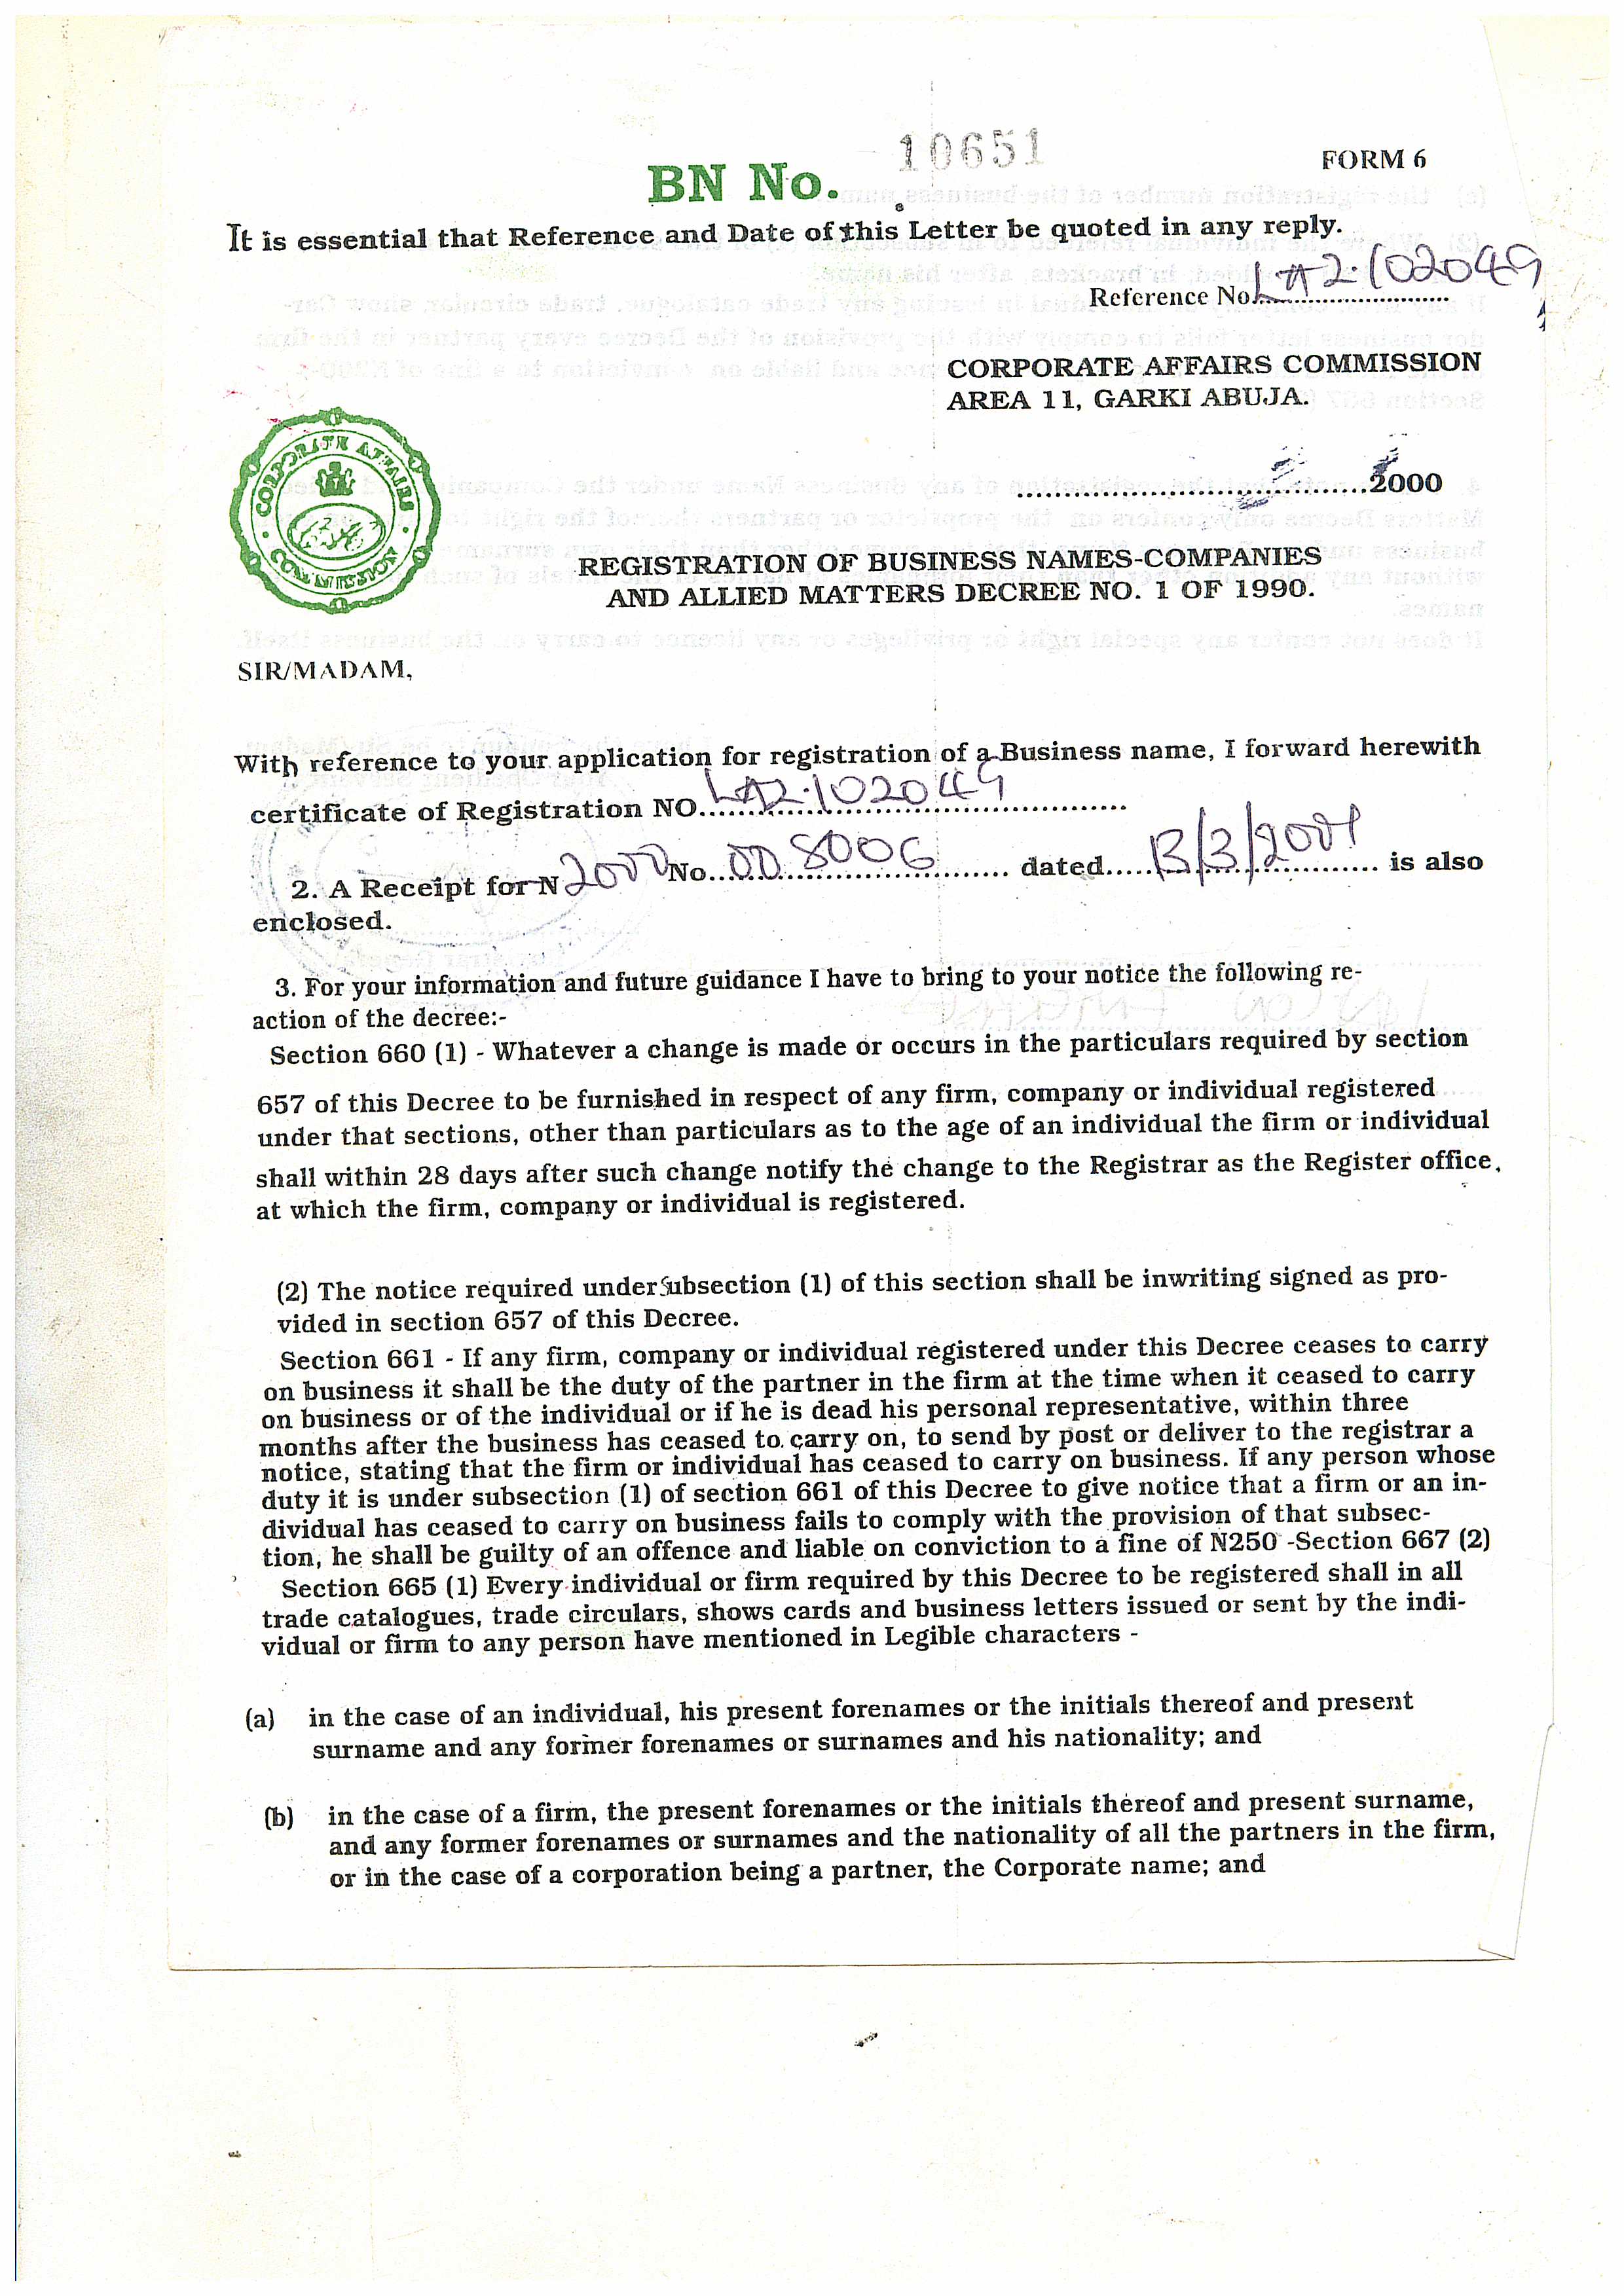 10651
BN No.
FORM 6
It is essential that Reference and Date of this Letter be quoted in any reply.
Reference No. LAZ.102049
CORPORATE AFFAIRS COMMISSION
AREA 11, GARKI ABUJA.
2000
CORPORATE AFFAIRS COMMISSION
REGISTRATION OF BUSINESS NAMES-COMPANIES
AND ALLIED MATTERS DECREE NO. 1 OF 1990.
SIR/MADAM,
With reference to your application for registration of a Business name, I forward herewith
certificate of Registration NO. LAZ.102049
2. A Receipt for N 2000 No. 008006 dated 13/3/2001 is also
enclosed.
3. For your information and future guidance I have to bring to your notice the following re-
action of the decree:-
Section 660 (1) - Whatever a change is made or occurs in the particulars required by section
657 of this Decree to be furnished in respect of any firm, company or individual registered
under that sections, other than particulars as to the age of an individual the firm or individual
shall within 28 days after such change notify the change to the Registrar as the Register office,
at which the firm, company or individual is registered.
(2) The notice required under Subsection (1) of this section shall be inwriting signed as pro-
vided in section 657 of this Decree.
Section 661 - If any firm, company or individual registered under this Decree ceases to carry
on business it shall be the duty of the partner in the firm at the time when it ceased to carry
on business or of the individual or if he is dead his personal representative, within three
months after the business has ceased to carry on, to send by post or deliver to the registrar a
notice, stating that the firm or individual has ceased to carry on business. If any person whose
duty it is under subsection (1) of section 661 of this Decree to give notice that a firm or an in-
dividual has ceased to carry on business fails to comply with the provision of that subsec-
tion, he shall be guilty of an offence and liable on conviction to a fine of N250 -Section 667 (2)
Section 665 (1) Every individual or firm required by this Decree to be registered shall in all
trade catalogues, trade circulars, shows cards and business letters issued or sent by the indi-
vidual or firm to any person have mentioned in Legible characters -
(a) in the case of an individual, his present forenames or the initials thereof and present
surname and any former forenames or surnames and his nationality; and
(b) in the case of a firm, the present forenames or the initials thereof and present surname,
and any former forenames or surnames and the nationality of all the partners in the firm,
or in the case of a corporation being a partner, the Corporate name; and